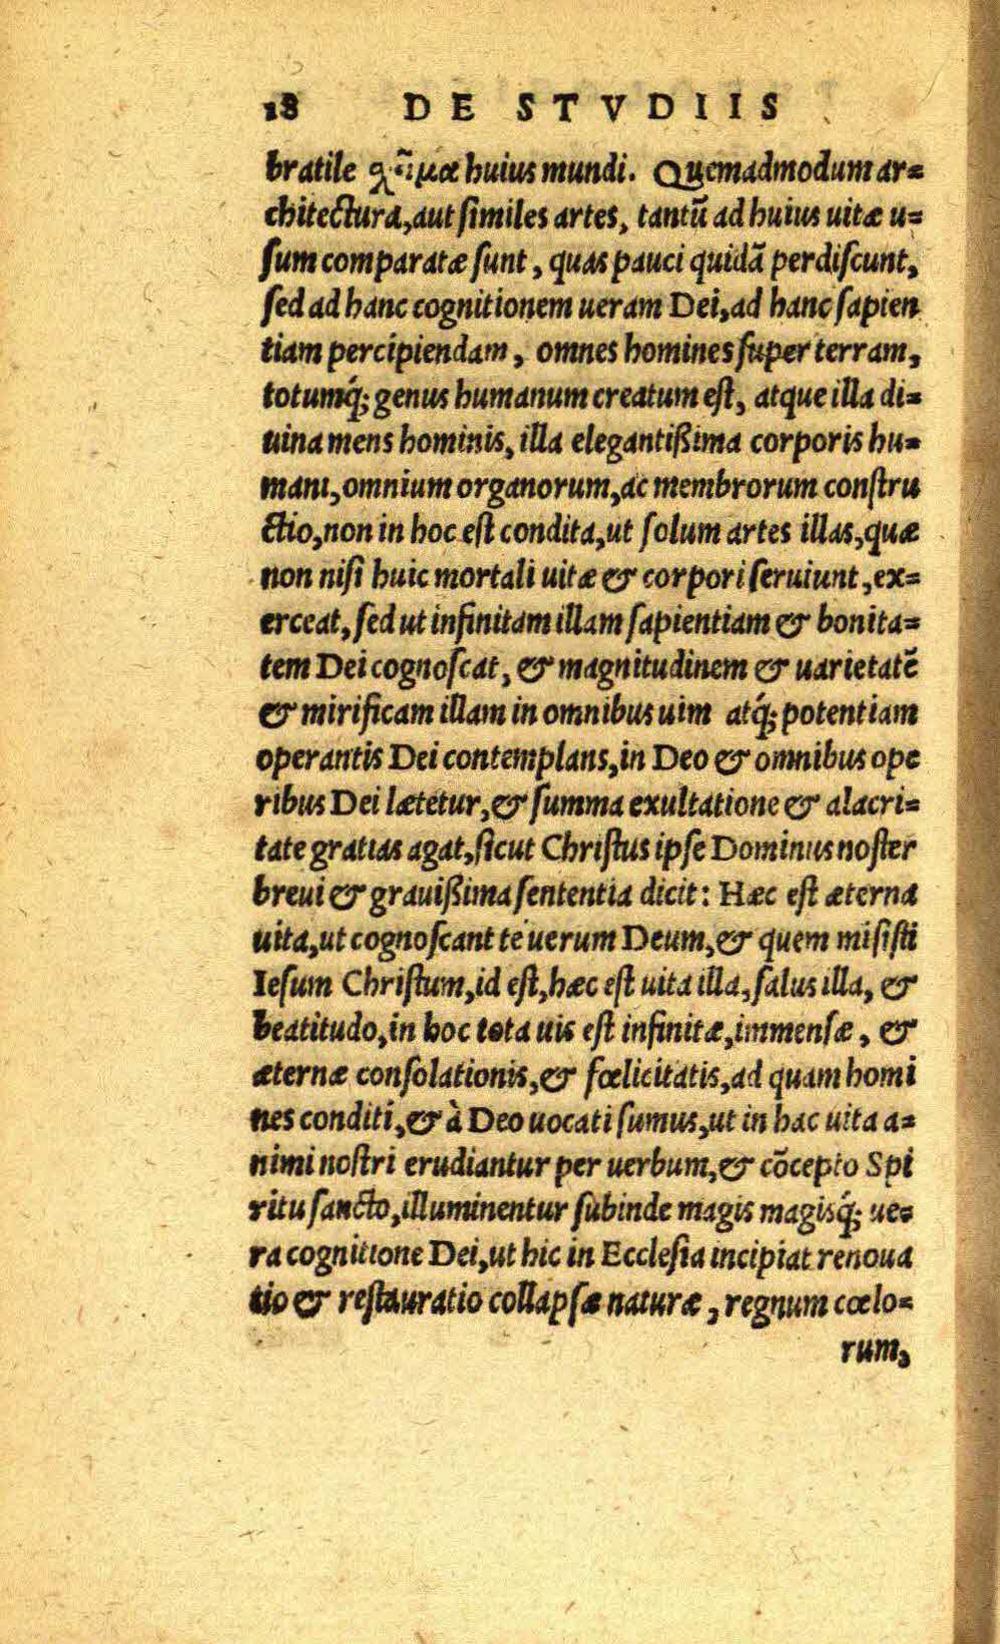 18 DE STVDIIS
bratile χῆμα huius mundi. Quemadmodum ar=
chitectura, aut similes artes, tantũ ad huius uitæ u=
sum comparatæ sunt, quas pauci quidã perdiscunt,
sed ad hanc cognitionem ueram Dei, ad hanc sapien
tiam percipiendam, omnes homines super terram,
totumq́; genus humanum creatum est, atque illa di=
uina mens hominis, illa elegantißima corporis hu=
mani, omnium organorum, ac membrorum constru
ctio, non in hoc est condita, ut solum artes illas, quæ
non nisi huic mortali uitæ & corpori seruiunt, ex=
erceat, sed ut infinitam illam sapientiam & bonita=
tem Dei cognoscat, & magnitudinem & uarietatẽ
& mirificam illam in omnibus uim atq́; potentiam
operantis Dei contemplans, in Deo & omnibus ope
ribus Dei lætetur, & summa exultatione & alacri=
tate gratias agat, sicut Christus ipse Dominus noster
breui & grauißima sententia dicit: Hæc est æterna
uita, ut cognoscant te uerum Deum, & quem misisti
Iesum Christum, id est, hæc est uita illa, salus illa, &
beatitudo, in hoc tota uis est infinitæ, immensæ, &
æternæ consolationis, & fœlicitatis, ad quam homi
nes conditi, & à Deo uocati sumus, ut in hac uita a=
nimi nostri erudiantur per uerbum, & cõcepto Spi
ritu sancto, illuminentur subinde magis magisq́; ue=
ra cognitione Dei, ut hic in Ecclesia incipiat renoua
tio & restauratio collapsæ naturæ, regnum cœlo=
rum,